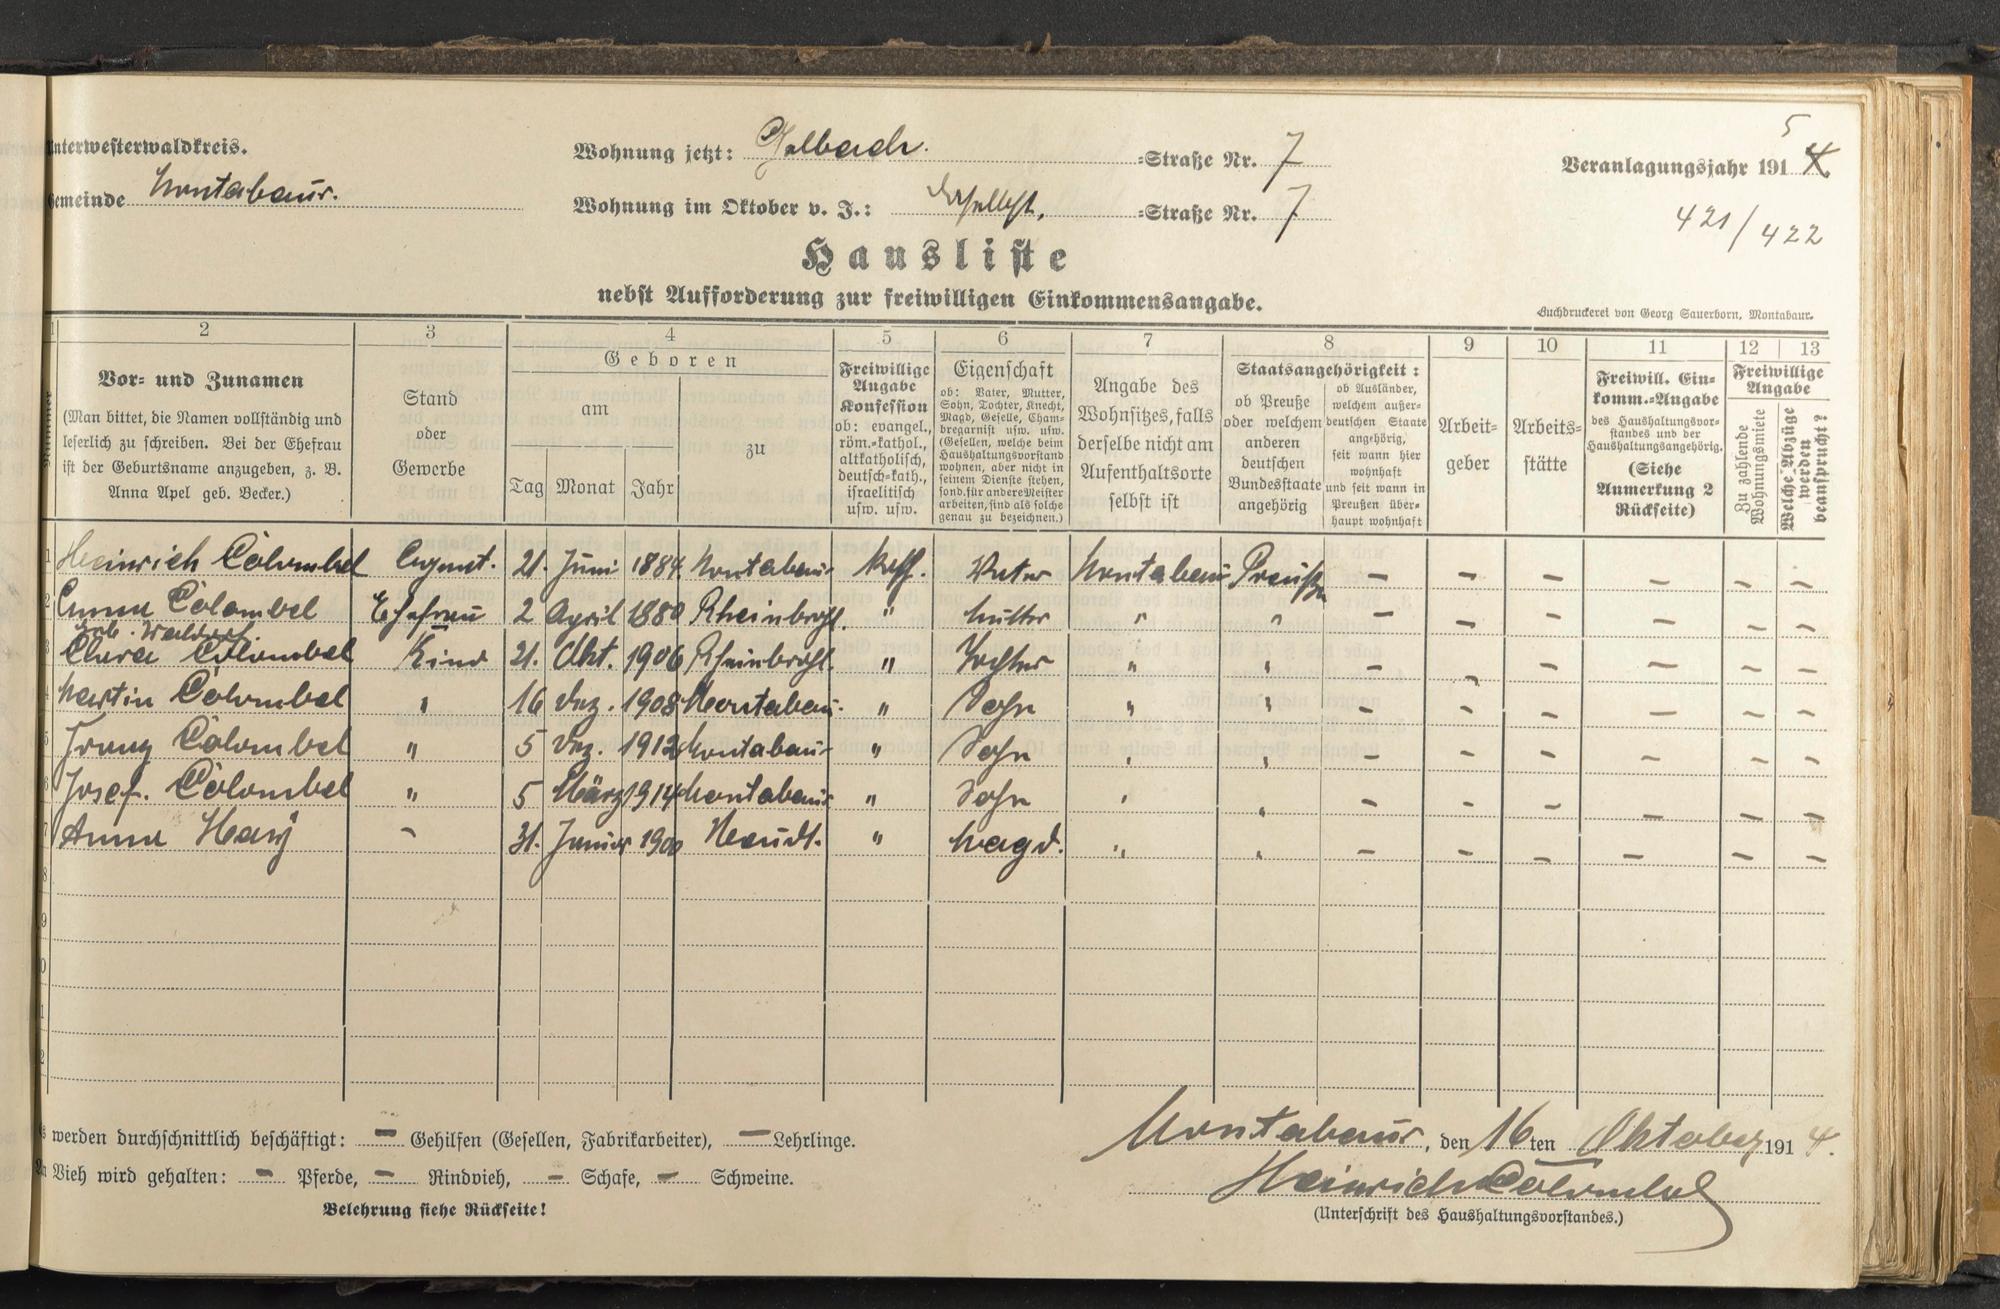 Unterwesterwaldkreis.
Gemeinde Montabaur.
Wohnung jetzt: Gelbach. =Straße Nr. 7
Wohnung im Oktober v. J.: daselbst, =Straße Nr. 7
Veranlagungsjahr 191 4 5
421/422
Hausliste
nebst Aufforderung zur freiwilligen Einkommensangabe.
Buchdruckerei von Georg Sauerborn, Montabaur.
1 2 3 4 5 6 7 8 9 10 11 12 13
Nummer
Vor= und Zunamen
(Man bittet, die Namen vollständig und
leserlich zu schreiben. Bei der Ehefrau
ist der Geburtsname anzugeben, z. B.
Anna Apel geb. Becker.)
Stand
oder
Gewerbe
Geboren
am
Tag Monat Jahr
zu
Freiwillige
Angabe
Konfession
ob: evangel.,
röm.=kathol.,
altkatholisch,
deutsch=kath.,
israelitisch
usw. usw.
Eigenschaft
ob: Vater, Mutter,
Sohn, Tochter, Knecht,
Magd, Geselle, Cham=
bregarnist usw. usw.
(Gesellen, welche beim
Haushaltungsvorstand
wohnen, aber nicht in
seinem Dienste stehen,
sond. für andere Meister
arbeiten, sind als solche
genau zu bezeichnen.)
Angabe des
Wohnsitzes, falls
derselbe nicht am
Aufenthaltsorte
selbst ist
Staatsangehörigkeit:
ob Preuße
oder welchem
anderen
deutschen
Bundesstaate
angehörig
ob Ausländer,
welchem außer=
deutschen Staate
angehörig,
seit wann hier
wohnhaft
und seit wann in
Preußen über=
haupt wohnhaft
Arbeit=
geber
Arbeits=
stätte
Freiwill. Ein=
komm.=Angabe
des Haushaltungsvor=
standes und der
Haushaltungsangehörig.
(Siehe
Anmerkung 2
Rückseite)
Freiwillige
Angabe
Zu zahlende
Wohnungsmiete
Welche Abzüge
werden
beansprucht?
1 Heinrich Colombel 21. Juni 1884 Montabaur Kath. Vater Montabaur Preußen — — — — — —
2 Anna Colombel Ehefrau 2 April 1880 Rheinbrohl. " Mutter " " — — — — — —
geb. Waldorf.
3 Clara Colombel Kind 21. Okt. 1906 Rheinbrohl. " Tochter " " — — — — — —
4 Martin Colombel " 16 Dez. 1908 Montabaur. " Sohn " " — — — — — —
5 Franz Colombel " 5 Dez. 1912 Montabaur " Sohn " " — — — — — —
6 Josef. Colombel " 5 März 1914 Montabaur " Sohn " " — — — — — —
7 Anna Hary – 31. Januar 1900 Heudt. " Magd. " " — — — — — —
8
9
0
1
2
werden durchschnittlich beschäftigt: — Gehilfen (Gesellen, Fabrikarbeiter), — Lehrlinge.
An Vieh wird gehalten: — Pferde, — Rindvieh, — Schafe, — Schweine.
Belehrung siehe Rückseite!
Montabaur, den 16ten Oktober 1914.
Heinrich Colombel
(Unterschrift des Haushaltungsvorstandes.)